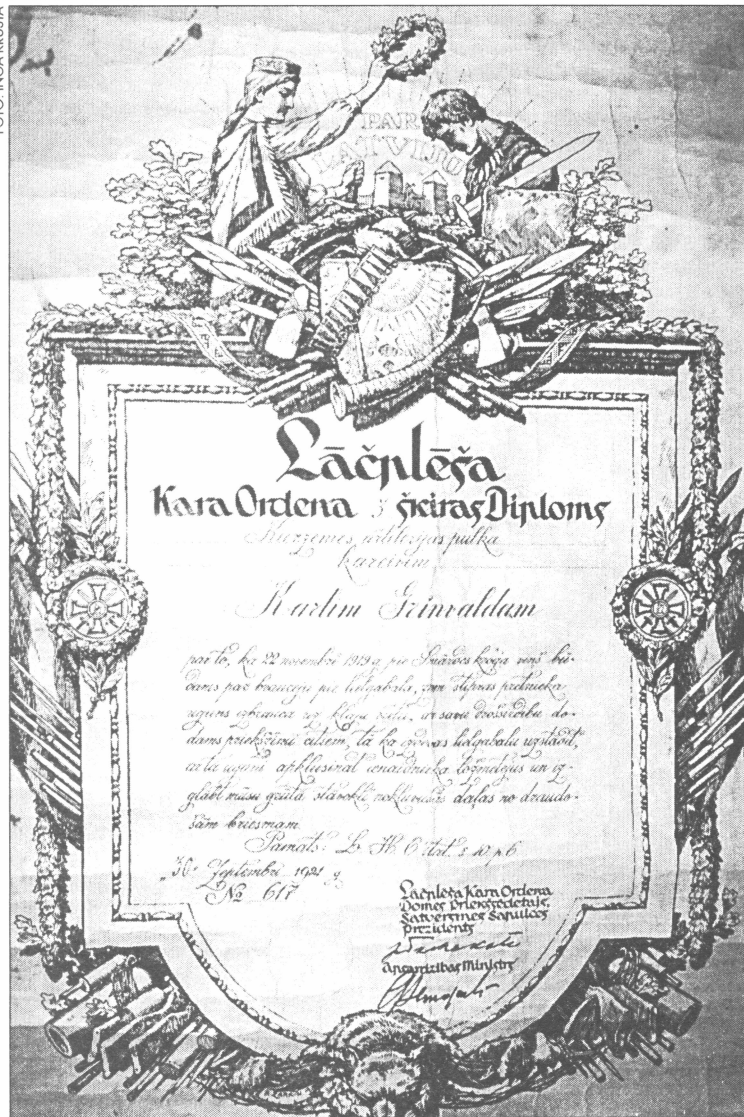 FOTO: INGA
PAR
LATVIJU
Lāčplēša
Kara Ordeņa 3 šķiras Diploms
Kurzemes artilerijas pulka
kareivim
Kārlim Grinvaldum
par to, ka 22 novembrī 1919 g. pie krogā viņš bū-
dams par braucēju pie lielgabala, zem stipras pretinieka
uguns izbrauca uz klaju ar savu drošsirdību do-
dams priekšzīmi citiem, tā ka izdevās lielgabalu uzstādīt,
ar tā uguni apklusināt ienaidnieka ložmetējus un iz-
glābt mūsu grūtā stāvoklī nokļuvušās daļas no draudo-
šām briesmām.
Pamats: L. K. O. stat. §
"30" Septembrī 1921 g.
№ 617
Lāčplēša Kara Ordeņa
Domes Priekšsēdētājs,
Satversmes Sapulces
Prezidents
Apsardzības Ministrs